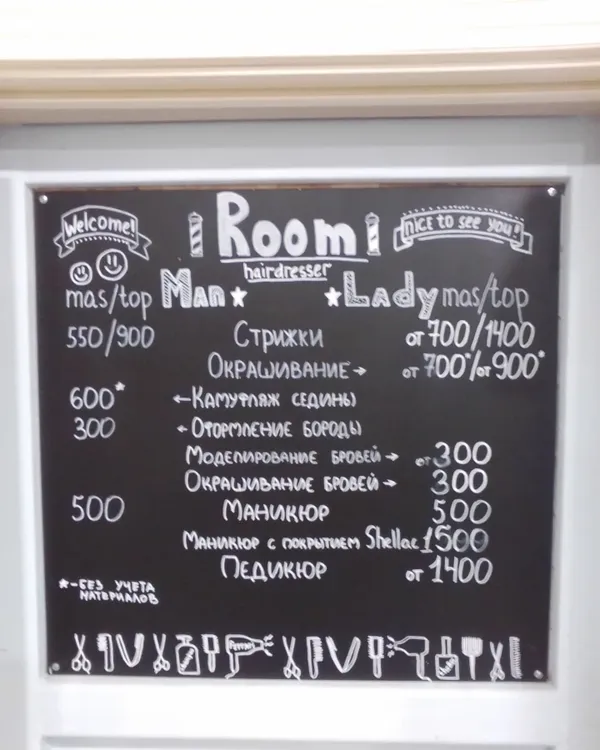 Welcome!
Room
nice to see you!
hairdresser
mas/top Man Lady mas/top
550/900 Стрижки от 700/1400
Окрашивание→ от 700*/от 900*
600* ←Камуфляж седины
300 ←Оформление бороды
Моделирование бровей→ от 300
Окрашивание бровей→ 300
500 Маникюр 500
Маникюр с покрытием Shellac 1500
Педикюр от 1400
*-без учета
материалов